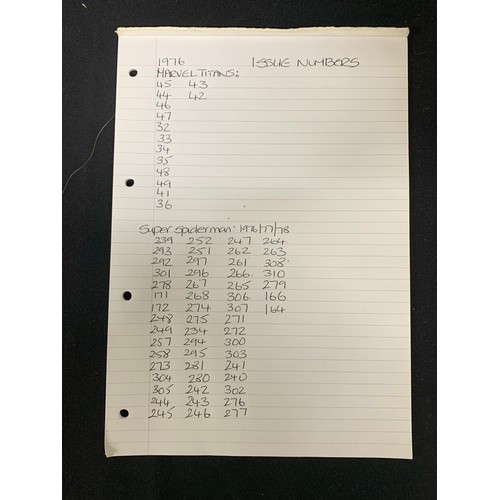 1976 ISSUE NUMBERS
MARVEL TITANS:
45 43
44 42
46
47
32
33
34
35
48
49
41
36
Super spiderman: 1976/77/78
239 252 247 264
293 251 262 263
292 297 261 308
301 296 266 310
278 267 265 279
171 268 306 166
172 274 307 164
248 275 271
249 234 272
257 294 300
258 295 303
273 281 241
304 280 240
305 242 302
244 243 276
245 246 277